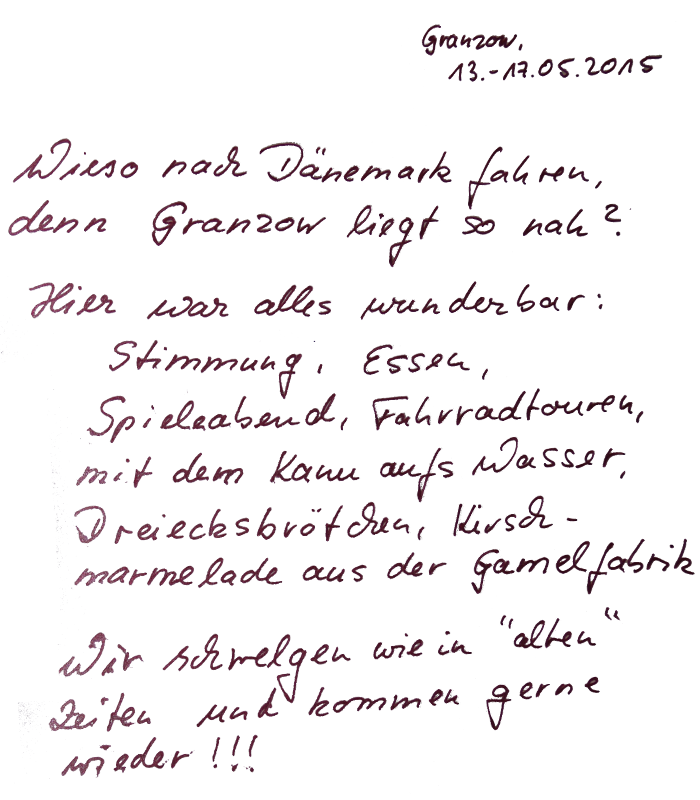 Granzow,
13.-17.05.2015
Wieso nach Dänemark fahren,
denn Granzow liegt so nah?
Hier war alles wunderbar:
Stimmung, Essen,
Spieleabend, Fahrradtouren,
mit dem Kanu aufs Wasser,
Dreiecksbrötchen, Kirsch-
marmelade aus der Gamelfabrik
Wir schwelgen wie in "alten"
Zeiten und kommen gerne
wieder!!!